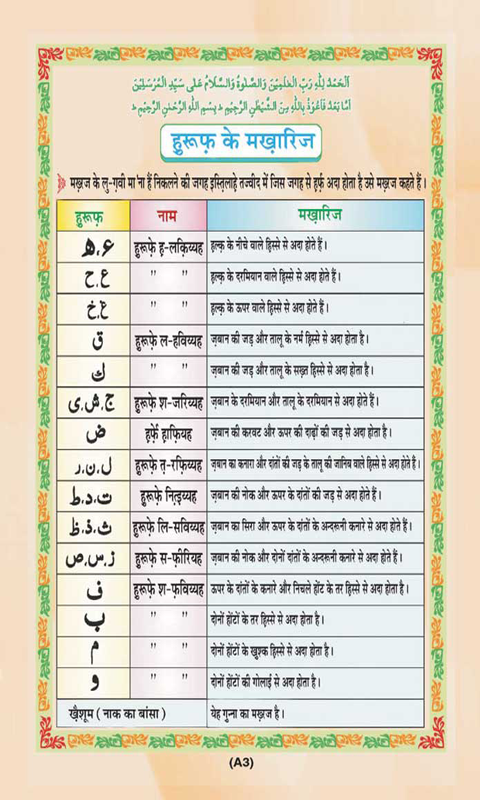 اَلْحَمْدُ لِلّٰهِ رَبِّ الْعٰلَمِیْنَ وَالصَّلٰوةُ وَالسَّلَامُ عَلٰی سَیِّدِ الْمُرْسَلِیْنَ
اَمَّا بَعْدُ فَاَعُوْذُ بِاللّٰهِ مِنَ الشَّیْطٰنِ الرَّجِیْمِ ؕ بِسْمِ اللّٰهِ الرَّحْمٰنِ الرَّحِیْمِ ؕ
हुरूफ़ के मख़ारिज
मख़्रज के लु-ग़वी मा'ना हैं निकलने की जगह इस्तिलाहे तज्वीद में जिस जगह से हर्फ़ अदा होता है उसे मख़्रज कहते हैं ।
हुरूफ़ नाम मख़ारिज
ء،ھ हुरूफ़े ह़-लक़िय्यह हल्क़ के नीचे वाले हिस्से से अदा होते हैं ।
ع،ح " " हल्क़ के दरमियान वाले हिस्से से अदा होते हैं ।
غ،خ " " हल्क़ के ऊपर वाले हिस्से से अदा होते हैं ।
ق हुरूफ़े ल-हविय्यह ज़बान की जड़ और तालू के नर्म हिस्से से अदा होता है ।
ك " " ज़बान की जड़ और तालू के सख़्त हिस्से से अदा होता है ।
ج،ش،ی हुरूफ़े श-जरिय्यह ज़बान के दरमियान और तालू के दरमियान से अदा होते हैं ।
ض हर्फ़े हाफ़ियह ज़बान की करवट और ऊपर की दाढ़ों की जड़ से अदा होता है ।
ل،ن،ر हुरूफ़े त़-रफ़िय्यह ज़बान का कनारा और दांतों की जड़ के तालू की जानिब वाले हिस्से से अदा होते हैं ।
ت،د،ط हुरूफ़े नित़्इय्यह ज़बान की नोक और ऊपर के दांतों की जड़ से अदा होते हैं ।
ث،ذ،ظ हुरूफ़े लि-सविय्यह ज़बान का सिरा और ऊपर के दांतों के अन्दरूनी कनारे से अदा होते हैं ।
ز،س،ص हुरूफ़े स-फ़ीरियह ज़बान की नोक और दोनों दांतों के अन्दरूनी कनारे से अदा होते हैं ।
ف हुरूफ़े श-फ़विय्यह ऊपर के दांतों के कनारे और निचले होंट के तर हिस्से से अदा होता है ।
ب " " दोनों होंटों के तर हिस्से से अदा होता है ।
م " " दोनों होंटों के ख़ुश्क हिस्से से अदा होता है ।
و " " दोनों होंटों की गोलाई से अदा होता है ।
ख़ैशूम ( नाक का बांसा ) येह ग़ुन्ना का मख़्रज है ।
(A3)